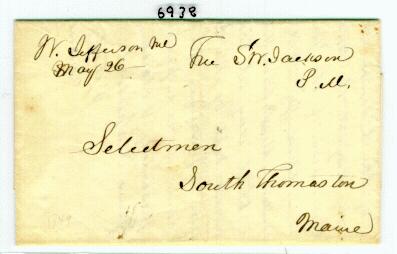 6938
W. Jefferson Me
May 26
Free S.W. Jackson
P. M.
Selectmen
South Thomaston
Maine